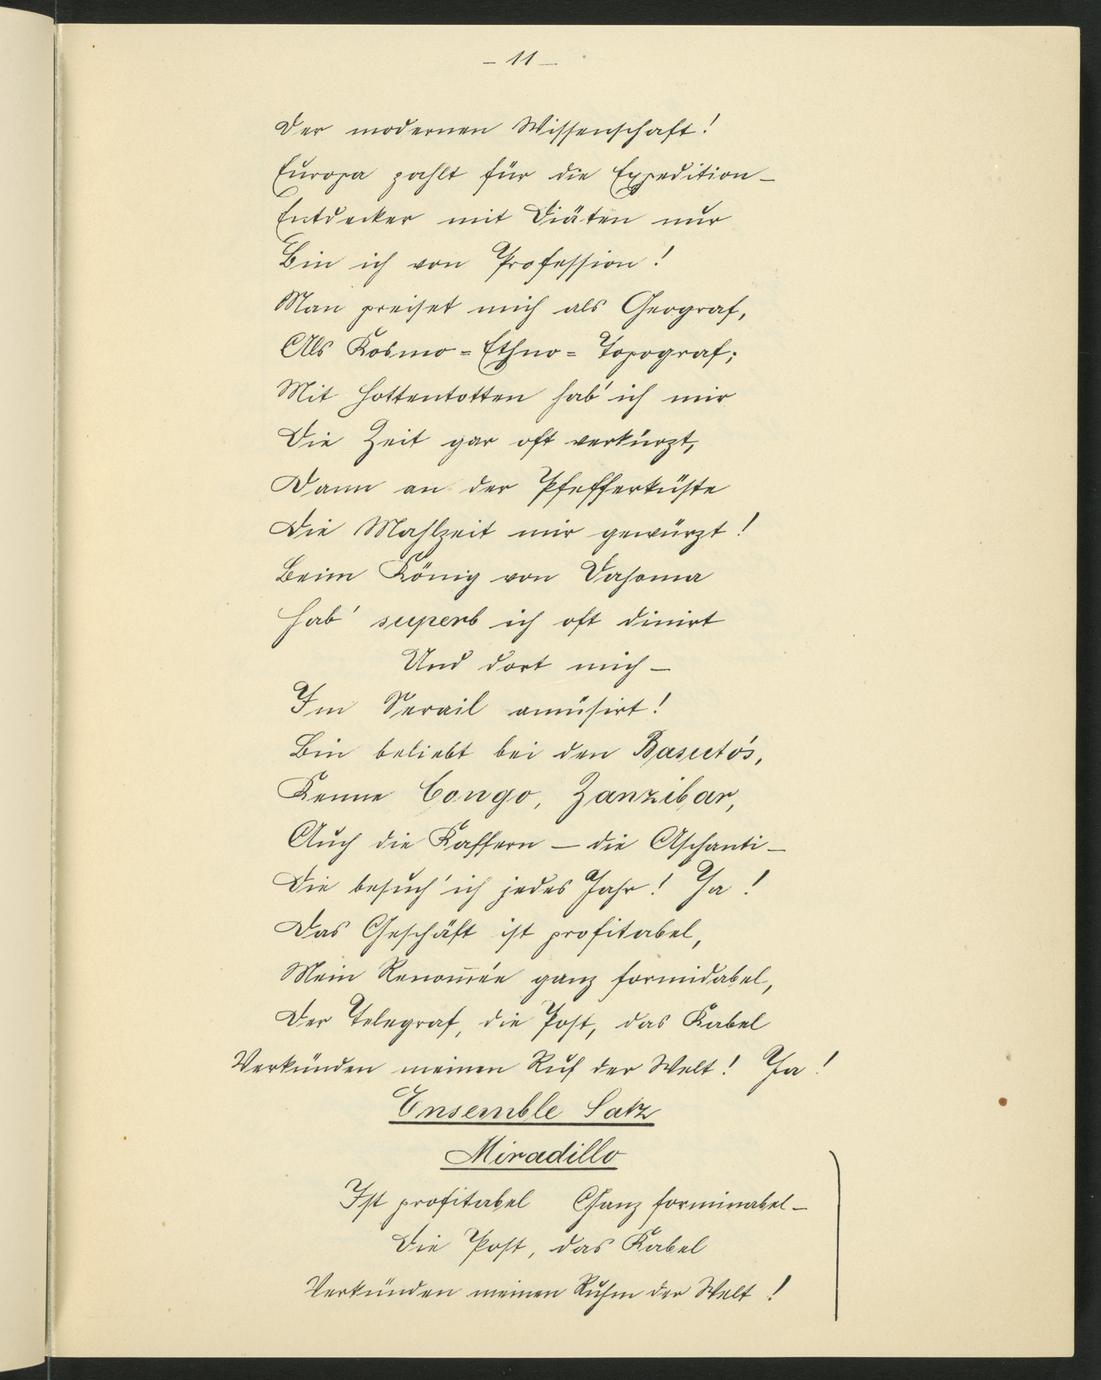 - 11 -
Der modernen Wissenschaft!
Europa zahlt für die Expedition -
Entdecker mit Diäten nur
Bin ich von Profession!
Man preiset mich als Geograf,
Als Kosmo = Ethno = Topograf;
Mit Hottentotten hab' ich mir
Die Zeit gar oft verkürzt,
Dann an der Pfefferküste
Die Mahlzeit mir gewürzt!
Beim König von Dahoma
Hab' superb ich oft dinirt
Und dort mich -
Im Serail amüsirt!
Bin beliebt bei den Basuto's,
Kenne Congo, Zanzibar,
Auch die Kaffern - die Aschanti -
Die besuch' ich jedes Jahr! Ja!
Das Geschäft ist profitabel,
Mein Renom̄ée ganz formidabel,
Der Telegraf, die Post, das Kabel
Verkünden meinen Ruf der Welt! Ja!
Ensemble Satz
Miradillo
Ist profitabel Ganz forminabel -
Die Post, das Kabel
Verkünden meinen Ruhm der Welt!